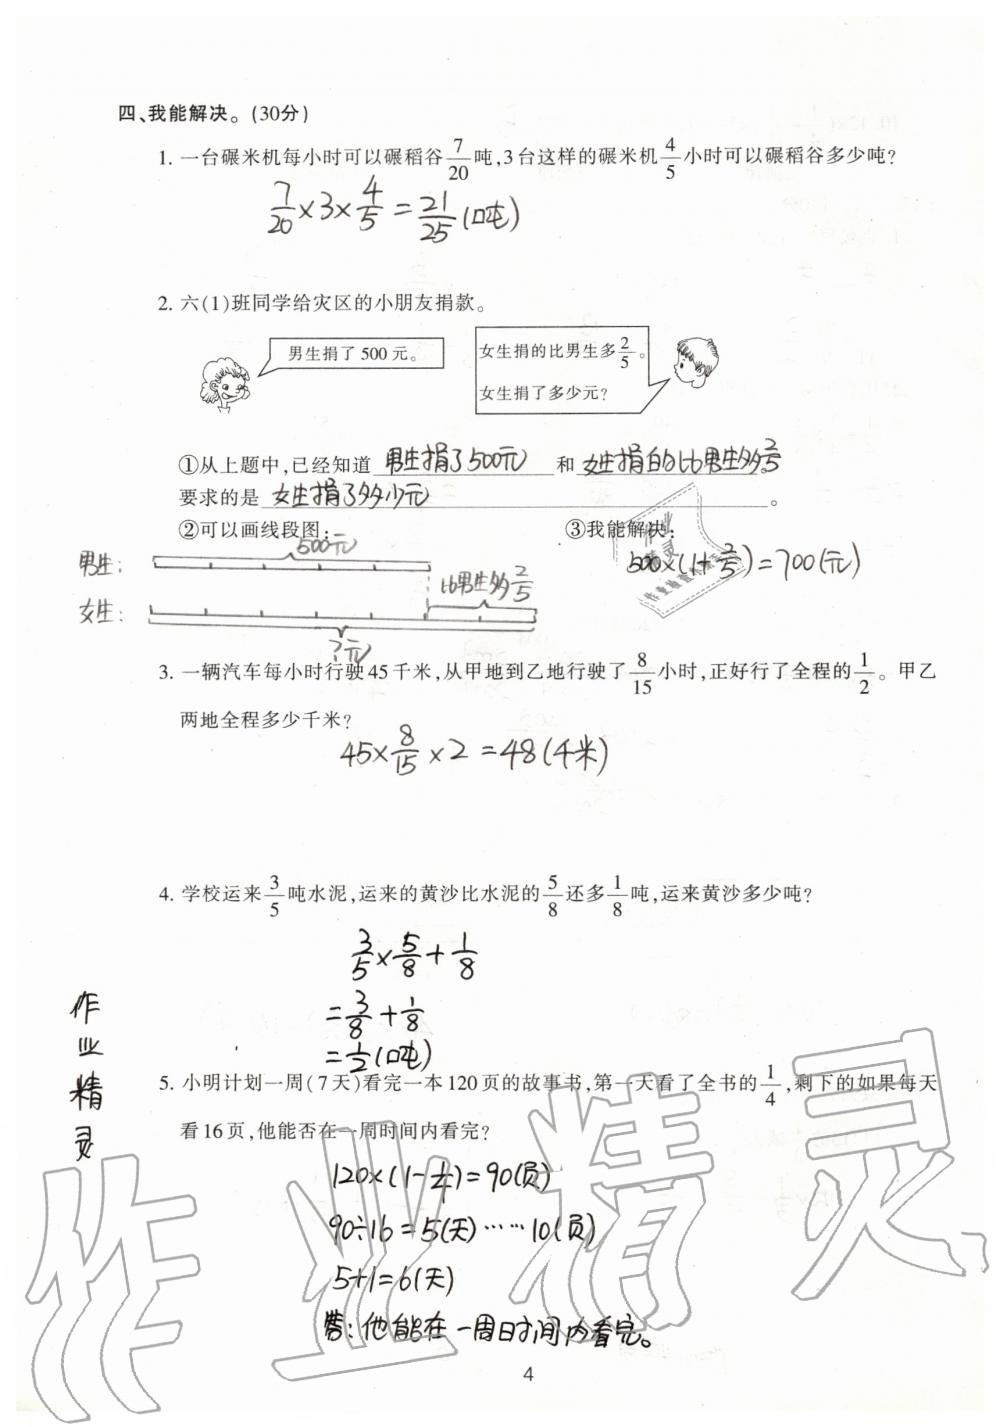 四、我能解决。(30分)
1. 一台碾米机每小时可以碾稻谷7/20吨,3台这样的碾米机4/5小时可以碾稻谷多少吨?
7/20×3×4/5=21/25(吨)
2. 六(1)班同学给灾区的小朋友捐款。
男生捐了500元。
女生捐的比男生多2/5。
女生捐了多少元?
①从上题中,已经知道 男生捐了500元 和 女生捐的比男生多2/5
要求的是 女生捐了多少元 。
②可以画线段图:
③我能解决:
500元
男生:
500×(1+2/5)=700(元)
比男生多2/5
女生:
?元
3. 一辆汽车每小时行驶45千米,从甲地到乙地行驶了8/15小时,正好行了全程的1/2。甲乙
两地全程多少千米?
45×8/15×2=48(千米)
4. 学校运来3/5吨水泥,运来的黄沙比水泥的5/8还多1/8吨,运来黄沙多少吨?
3/5×5/8+1/8
=3/8+1/8
=1/2(吨)
作业精灵
5. 小明计划一周(7天)看完一本120页的故事书,第一天看了全书的1/4,剩下的如果每天
看16页,他能否在一周时间内看完?
120×(1-1/4)=90(页)
90÷16=5(天)……10(页)
5+1=6(天)
答:他能在一周时间内看完。
作业精灵
4